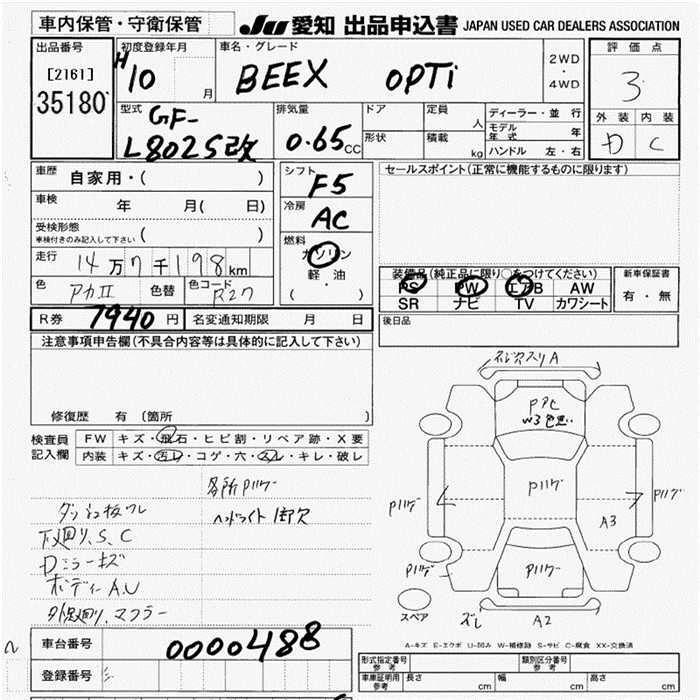 車内保管・守衛保管
JU 愛知 出品申込書 JAPAN USED CAR DEALERS ASSOCIATION
出品番号
[2161]
35180
初度登録年月
H10 月
車名・グレード
BEEX OPTi
2WD
・
4WD
評価点
3
外装 内装
D C
型式
GF-
L802S改
排気量
0.65 CC
ドア
定員 人
形状
積載 kg
ディーラー・並 行
モデル年式 年
ハンドル 左・右
車歴 自家用・( )
車検 年 月( 日)
受検形態
車検付きのみ記入して下さい ( )
走行 14万7千198km
色 アカII 色替 色コード R27
シフト
F5
冷房
AC
燃料
ガソリン
軽・油
( ・ )
セールスポイント(正常に機能するものに限ります)
装備品(純正品に限り○をつけてください)
PS PW エアB AW
SR ナビ TV カワシート
新車保証書
有・無
R券 7940 円 名変通知期限 月 日
後日品
注意事項申告欄(不具合内容等は具体的に記入して下さい)
修復歴 有 〔箇所 〕
検査員記入欄
FW キズ・飛石・ヒビ割・リペア跡・X要
内装 キズ・汚レ・コゲ・穴・スレ・キレ・破レ
各所Pハゲ
ヘッドライト
下廻リ、S、C
Dミラーキズ
ボディーA.U
マフラー
A
W3
Pハゲ
Pハゲ
Pハゲ
A3
Pハゲ
Pハゲ
スペア
ズレ
A2
A-キズ E-エクボ U-凹み W-補修跡 S-サビ C-腐食 XX-交換済
車台番号 0000488
登録番号
形式指定番号
参考
類別区分番号
参考
車庫証明用
参考
長さ cm
幅 cm
高さ cm